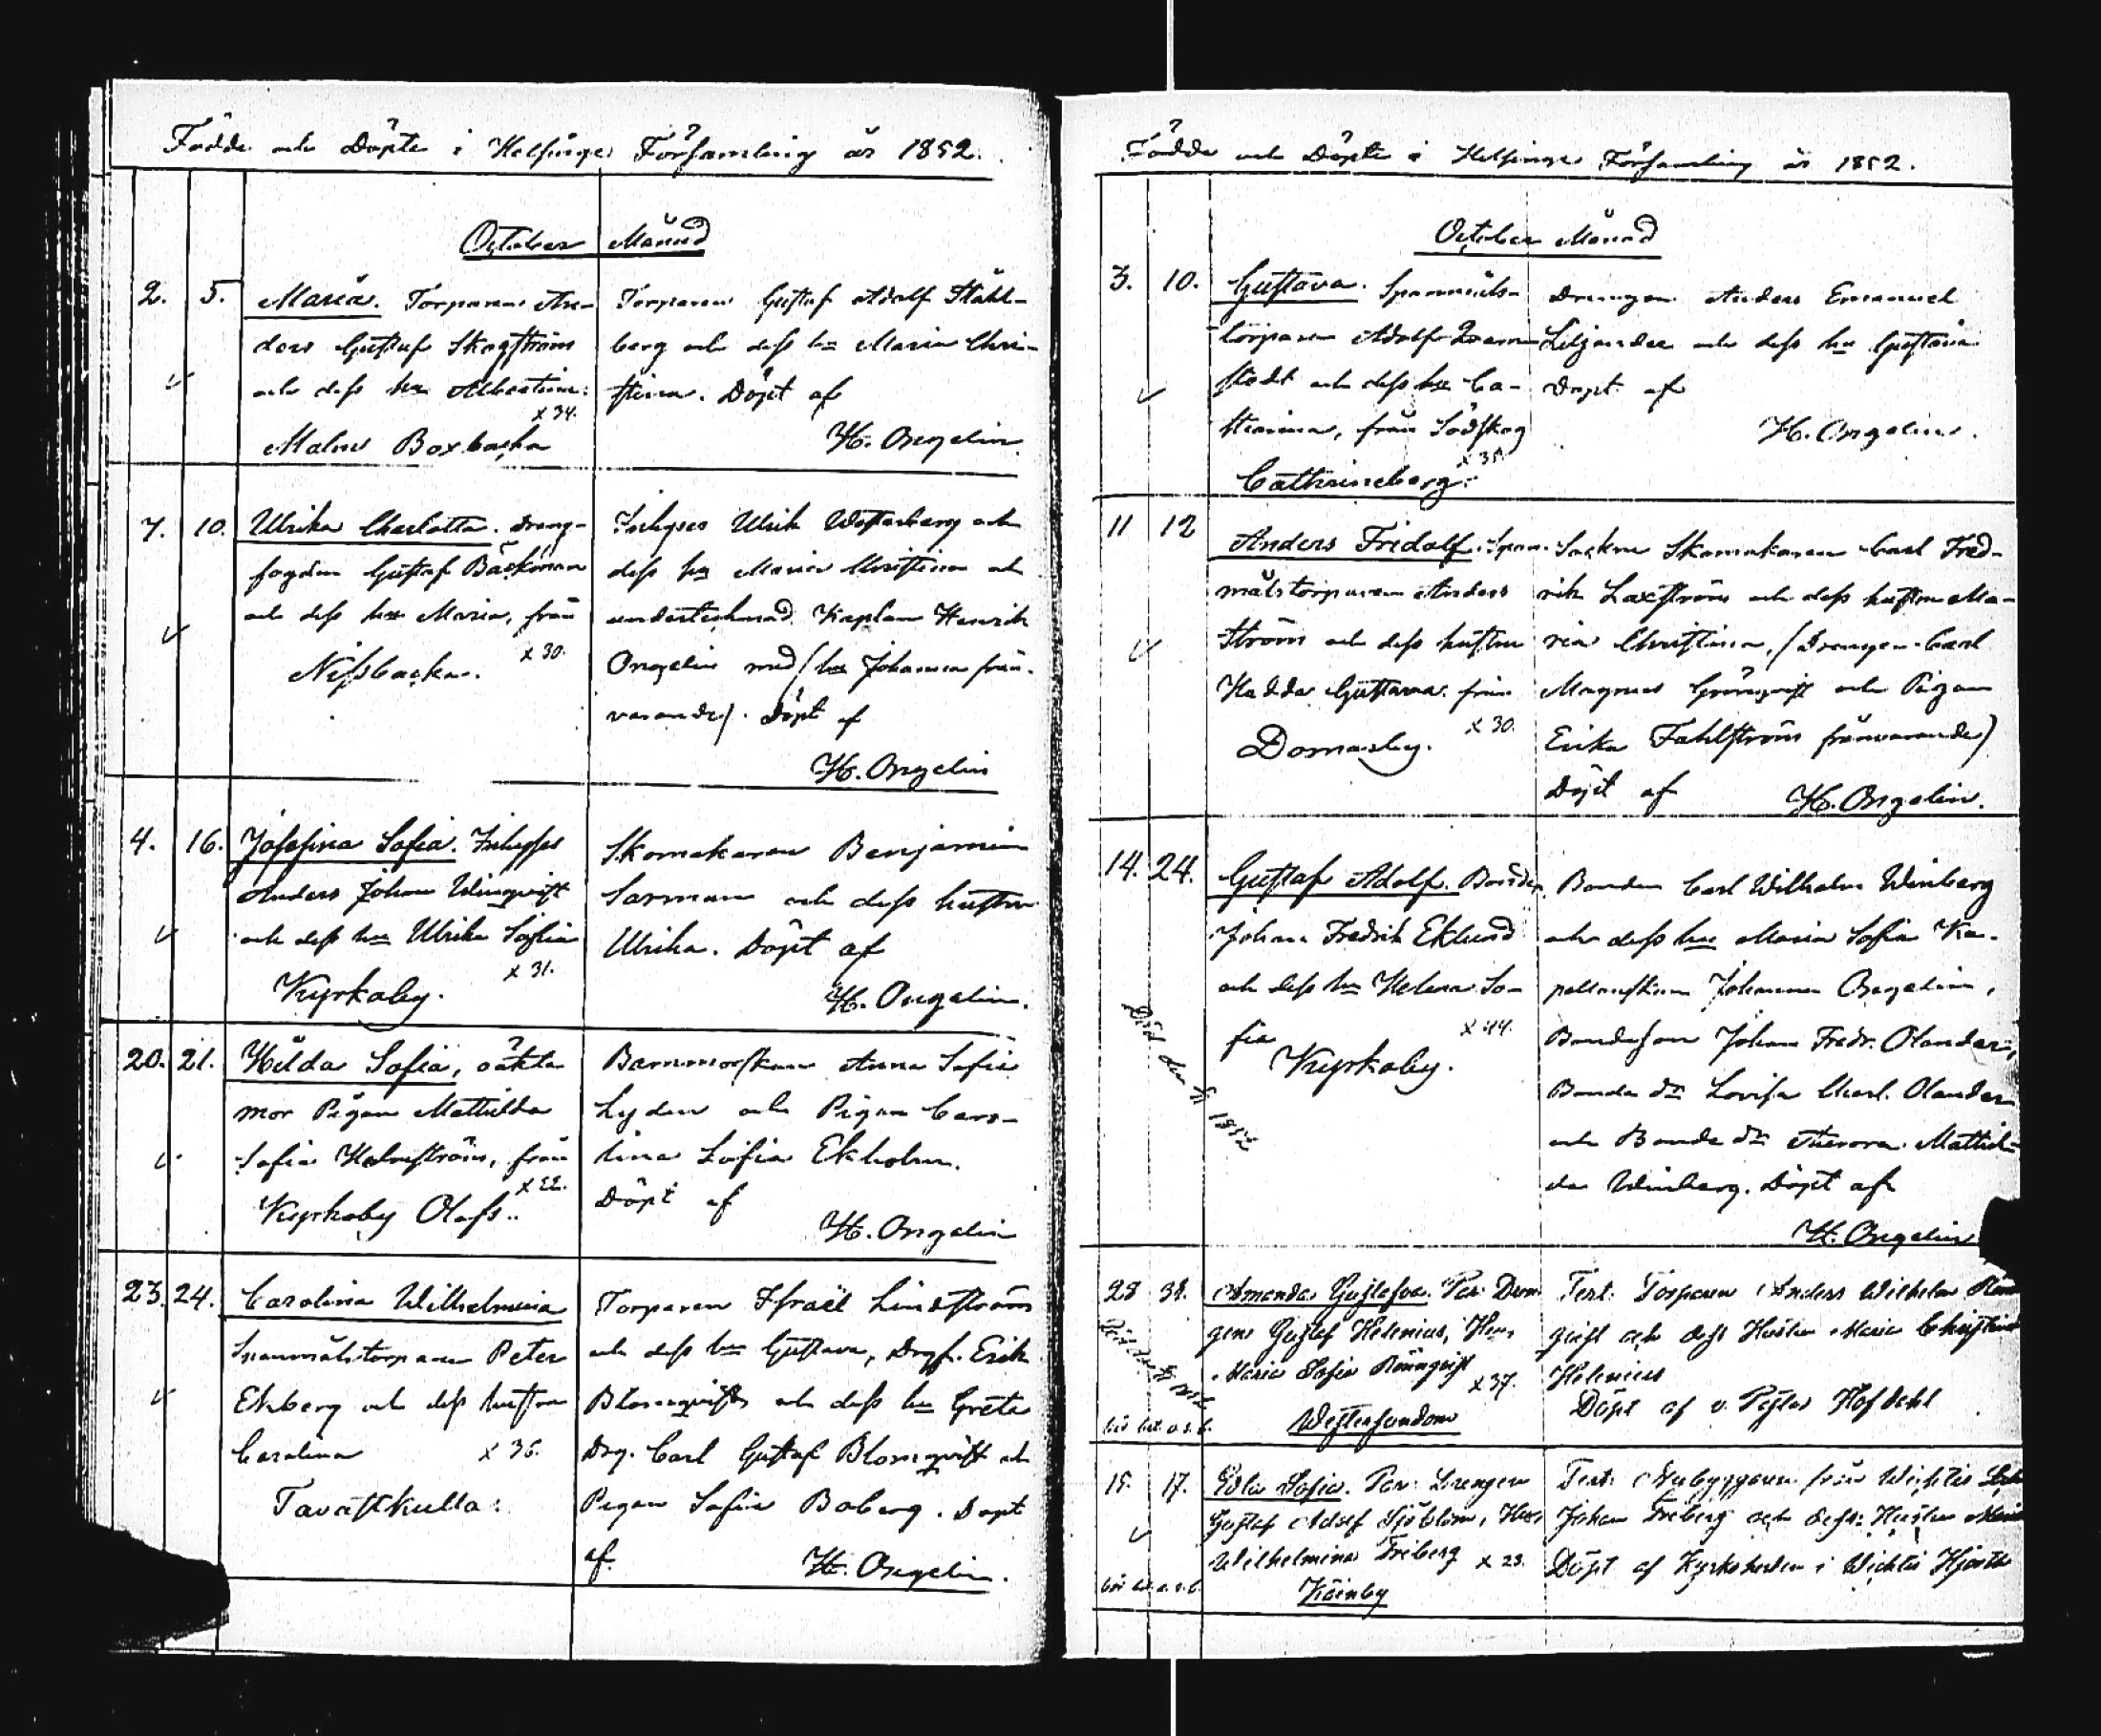 Födde och Döpte i Helsinge Församling år 1852.
October Månad
2. 5. Maria. Torparen An-
ders Gustaf Skogström
och dess hu Albertina
x 34.
Malm Boxbacka
Torparen Gustaf Adolf Ståhl-
berg och dess hu Maria Chri-
stina. Döpt af
H. Ongelin
7. 10. Ulrika Charlotta. Dreng-
fogden Gustaf Bäckman
och dess hu Maria, från
x 30.
Nissbacka.
Inhyses Ulrik Westerberg och
dess hu Maria Christina och
undertecknad Kaplan Henrik
Ongelin med (hu Johanna från-
varande). Döpt af
H. Ongelin
4. 16. Josefina Sofia. Inhyses
Anders Johan Winqvist
och dess hu Ulrika Sofia
x 31.
Kyrkoby.
Skomakaren Benjamin
Sarman och dess hustru
Ulrika. Döpt af
H. Ongelin.
20. 21. Hilda Sofia, oäkta
mor Pigan Mathilda
Sofia Holmström, från
x 22.
Kyrkoby Olofs..
Barnmorskan Anna Sofia
Lyden och Pigan Caro-
lina Sofia Ekholm.
Döpt af
H. Ongelin
23. 24. Carolina Wilhelmina
Spanmålstorparen Peter
Ekberg och dess hustru
Carolina x 36.
Tavastkulla:
Torparen Israel Lindström
och dess hu Gustava, Drgf. Erik
Blomqvist och dess hu Greta
Drg. Carl Gustaf Blomqvist och
Pigan Sofia Boberg. Döpt
af. H. Ongelin.
Födde och Döpte i Helsinge Församling år 1852.
October Månad
3. 10. Gustava. Spanmåls-
torparen Adolf
stedt och dess hu Ca-
tharina, från Södskog
x 35.
Cathrineberg:
Drengen Anders Emanuel
Liljander och dess hu Gustava
Döpt af
H. Ongelin.
11 12 Anders Fridolf. Span-
målstorparen Anders
Ström och dess hustru
Hedda Gustava från
x 30.
Domarby.
Sockne Skomakaren Carl Fred-
rik Laxström och dess hustru Ma-
ria Christina, (Drengen Carl
Magnus Grönqvist och Pigan
Erika Fahlström frånvarande)
Döpt af H. Ongelin.
14. 24. Gustaf Adolf. Bonden
Johan Fredrik Eklund
och dess hu Helena So-
fia x 44.
Kyrkoby.
Död den 1852
Bonden Carl Wilhelm Winberg
och dess hu Maria Sofia Ka-
pellanskan Johanna Ongelin,
Bondeson Johan Fredr. Olander,
Bonde dr Lovisa Charl. Olander
och Bonde dr Aurora Mathil-
da Winberg. Döpt af
H. Ongelin
28 31. Amanda Gustafva. Par: Dren
gen Gustaf Helenius, Hus:
Maria Sofia Rönnqvist
x 37.
Westersundom
Test: Torparen Anders Wilhelm Rönn
qvist och dess Hustru Maria Christina
Helenius
Döpt af v. Pastor Hofdahl
15. 17. Edla Sofia. Par: Drengen
Gustaf Adolf Sjöblom, Hus
Wilhelmina Friberg x 23.
Käinby
Test: Nybyggaren från Wichtis
Johan Friberg och dess Hustru
Döpt af Kyrkoherden i Wichtis Hjorth